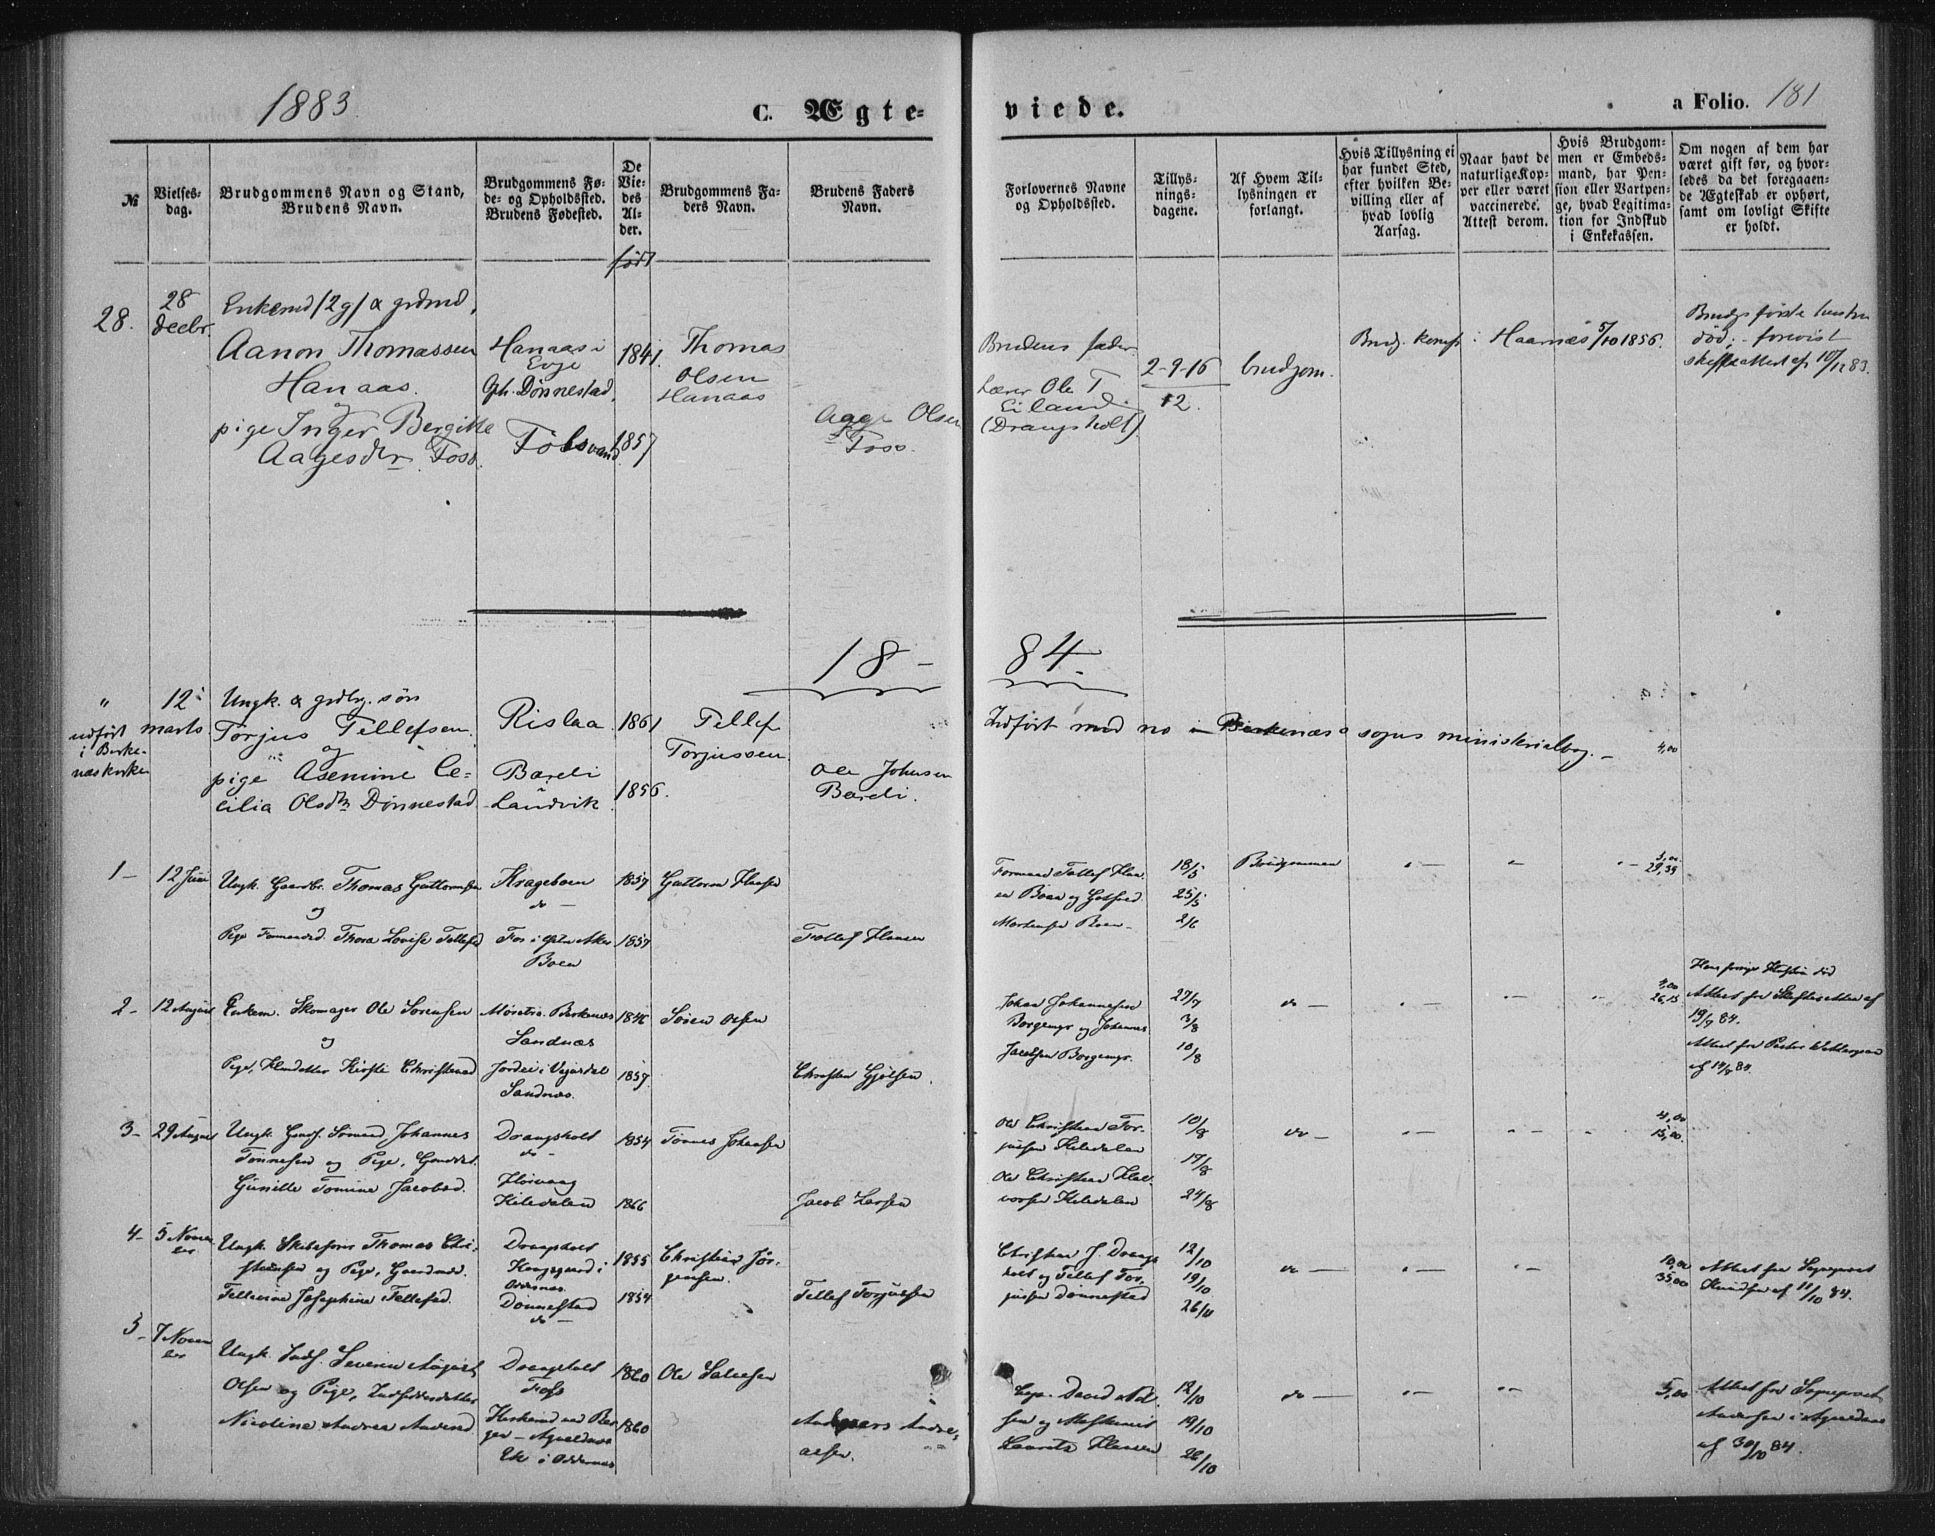 1883
C. Ægte-
viede.
a Folio. 181
№
Vielses-
dag.
Brudgommens Navn og Stand,
Brudens Navn.
Brudgommens Fø-
de- og Opholdssted.
Brudens Fødested.
De
Vie-
des
Al-
der.
født
Brudgommens Fa-
ders Navn.
Brudens Faders
Navn.
Forlovernes Navne
og Opholdssted.
Tillys-
nings-
dagene.
Af Hvem Til-
lysningen er
forlangt.
Hvis Tillysning ei
har fundet Sted,
efter hvilken Be-
villing eller af
hvad lovlig
Aarsag.
Naar havt de
naturlige Kop-
per eller været
vaccinerede.
Attest derom.
Hvis Brudgom-
men er Embeds-
mand, har Pen-
sion eller Vartpen-
ge, hvad Legitima-
tion for Indskud
i Enkekassen.
Om nogen af dem har
været gift før, og hvor-
ledes da det foregaaen-
de Ægteskab er ophørt,
samt om lovligt Skifte
er holdt.
28.
28
decbr.
Enkemd (2g) &
Aanon Thomassen
Hanaas.
og
pige Inger Bergitte
Aagesdtr Foss.
Hanaas i
Evje
Oph. Dønnestad,
Fobsvand
1841.
1857
Thomas
Olsen
Hanaas
Aage Olsen
Foss.
Brudens fader
Lærer Ole T.
Eiland
(Drangsholt).
2-9-16
12.
brudgom.
Brudg. konf. i Haarnæs 5/10 1856.
Brudgs første hustru
død; - forevist
skifteattest af 10/12 83.
18-84.
"
udført
i Birke-
næs kirke
12
marts
Ungk. & grdbr. søn
Torjus Tellefsen
og
pige Asenime Ce-
cilia Olsdtr Dønnestad
Rislaa
Bareli
Landvik
1861
1856.
Tellef
Torjussen
Ole Johnsen
Bareli.
Indført med no i Birkenæs sogns ministerialbog. -
4,00
1-
12 Juni
Ungk. Gaardbr. Thomas Guttormsen
og
Pige Thora Lovise Tellefsd
Krageboen
do -
Fos i
Boen
1857
1857
Guttorm Hansen
Tellef Hansen
Formand Tellef Han-
en Boen og
Mortensen Boen -
18/5
25/5
2/6
Brudgommen
29,39
2-
12 August
Enkem. Skomager Ole Sørensen
og
Pige, Kirsti Christensd
Birkenæs
Sandnæs
i Vegusdal
Sandnæs.
1846
1857.
Søren Olsen
Christen Gjølsen.
Johan Johannesen
Borgemyr og Johannes
Jacobsen Borgemyr.
27/7
3/8
10/8
do -
4,00
26,15
Hans forrige Hustru død
Attest fra Skifteretten af
19/7 84.
Attest fra Pastor
af 14/8 84.
3-
29 August
Ungk. Johannes
Tønnesen og Pige,
Gunille Tomine Jacobsd.
Drangsholt
do -
Høivaag
Kiledalen
1854
1866
Tønnes Johansen
Jacob Larsen
Ole Christian Tor-
jussen Kiledalen
Ole Christian Hal-
vorsen Kiledalen
10/8
17/8
24/8
do -
4,00
15,00.
4-
5 Novem
ber
Ungk. Thomas Chri-
stensen og Pige, Gaardmd.
Tellevine Josephine Tellefsd.
Drangsholt
Kongsgaard i
Oddernes.
Donnestad
do -
1855
1854
Christian Jør-
gensen.
Tellef Torjussen
Christian J. Drangs-
holt og Tellef Tor-
jussen Dønnestad
12/10
19/10
26/10
do -
10,00
35,00
Attest fra Sognepræst
Knudsen af 11/10 84.
5-
7 Novem
ber
Ungk. Severin August
Olsen og Pige, Indsiddersdatter
Nicoline Andrea Andersd
Drangsholt
Foss
Ek i Oddernes
1860
1860
Ole Salvesen
Andreas Andre-
asen.
David
sen og
Lauritz Hansen
12/10
19/10
26/10
do -
5,00
Attest fra Sognepræst
Andersen i
af 30/10 84.